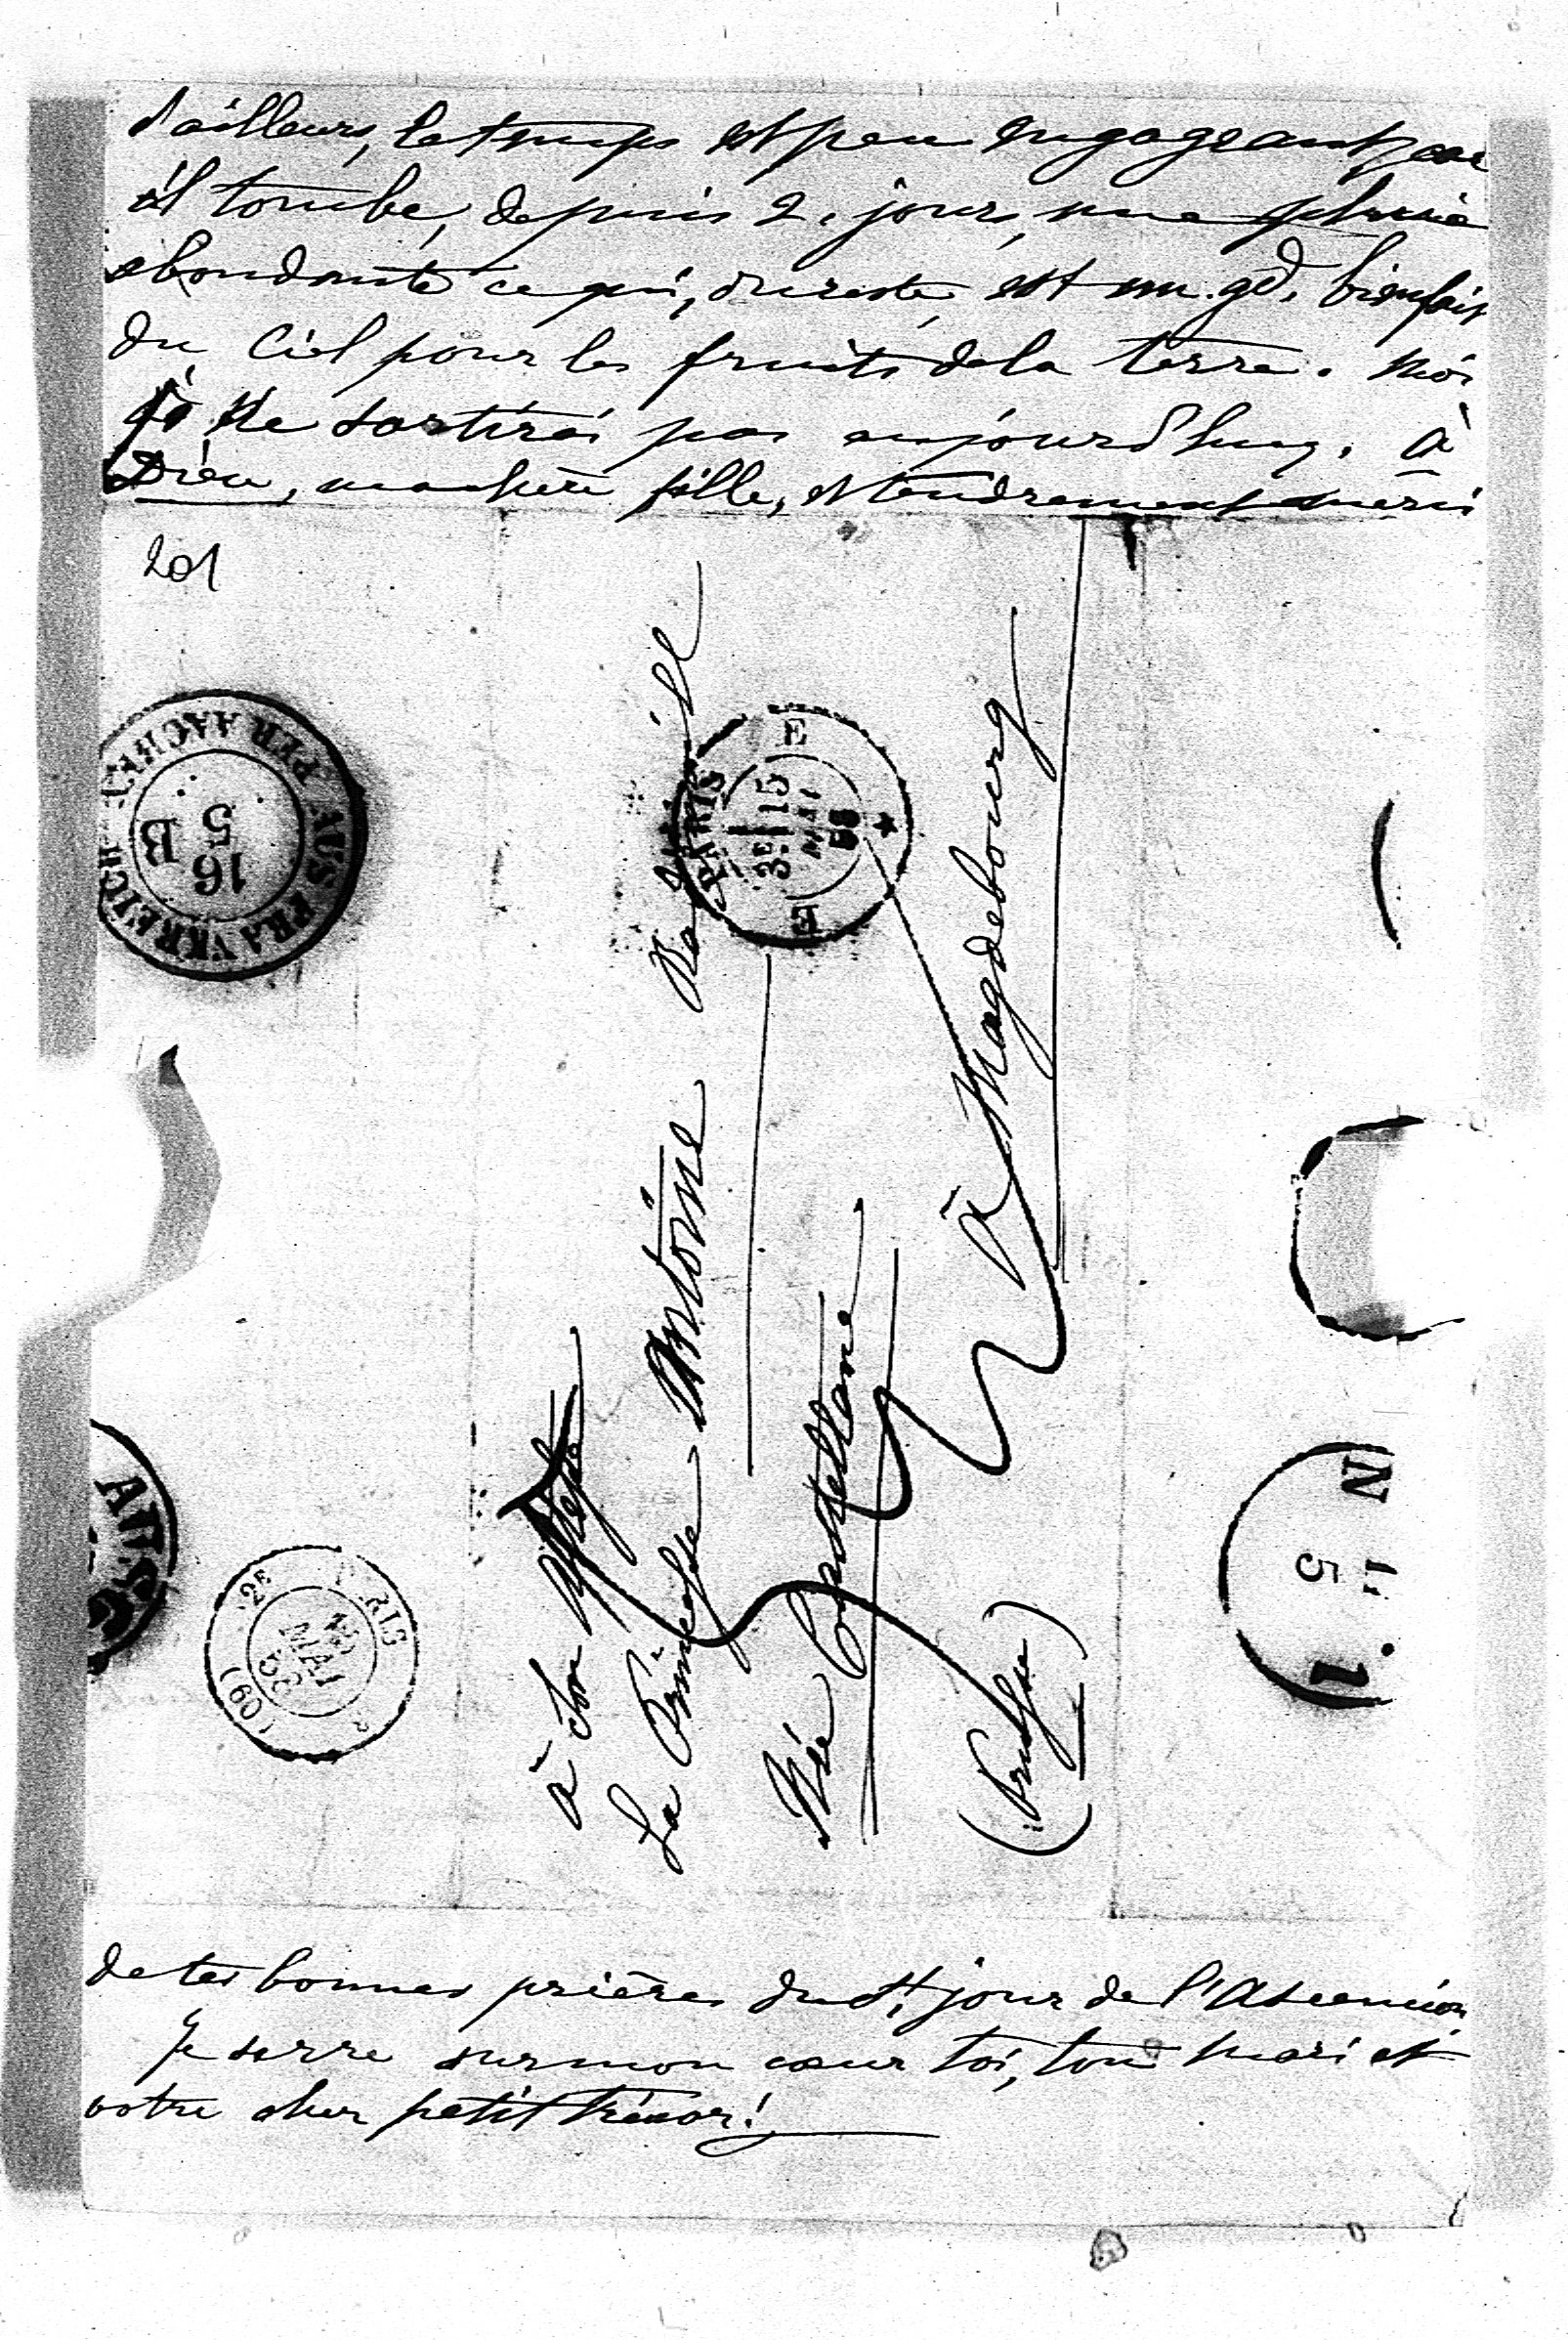 d'ailleurs, le temps est peu engageant, car
il tombe, depuis 2. jours, une pluie
abondante ce qui, du reste, est un gd. bienfait
du Ciel pour les fruits de la terre. Moi
je ne sortirai pas aujourd'huy. à
Dieu, ma chère fille, et tendrement merci
201
AUS FRANKREICH PER AACHEN
16
5
B
PARIS
E
3E
15
MAI
58
E
à Son
La Princesse Antoine Radziwill
Née Castellane
à Magdebourg
(Prusse)
AUS
PARIS
2E
15
MAI
(60)
N
5
1
de tes bonnes prières du St. jour de l'Ascension
Je serre sur mon cœur toi, ton mari et
votre cher petit trésor!